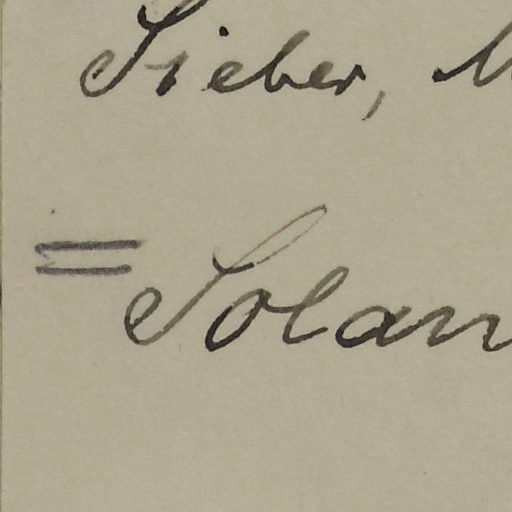 Sieber,
= Solan